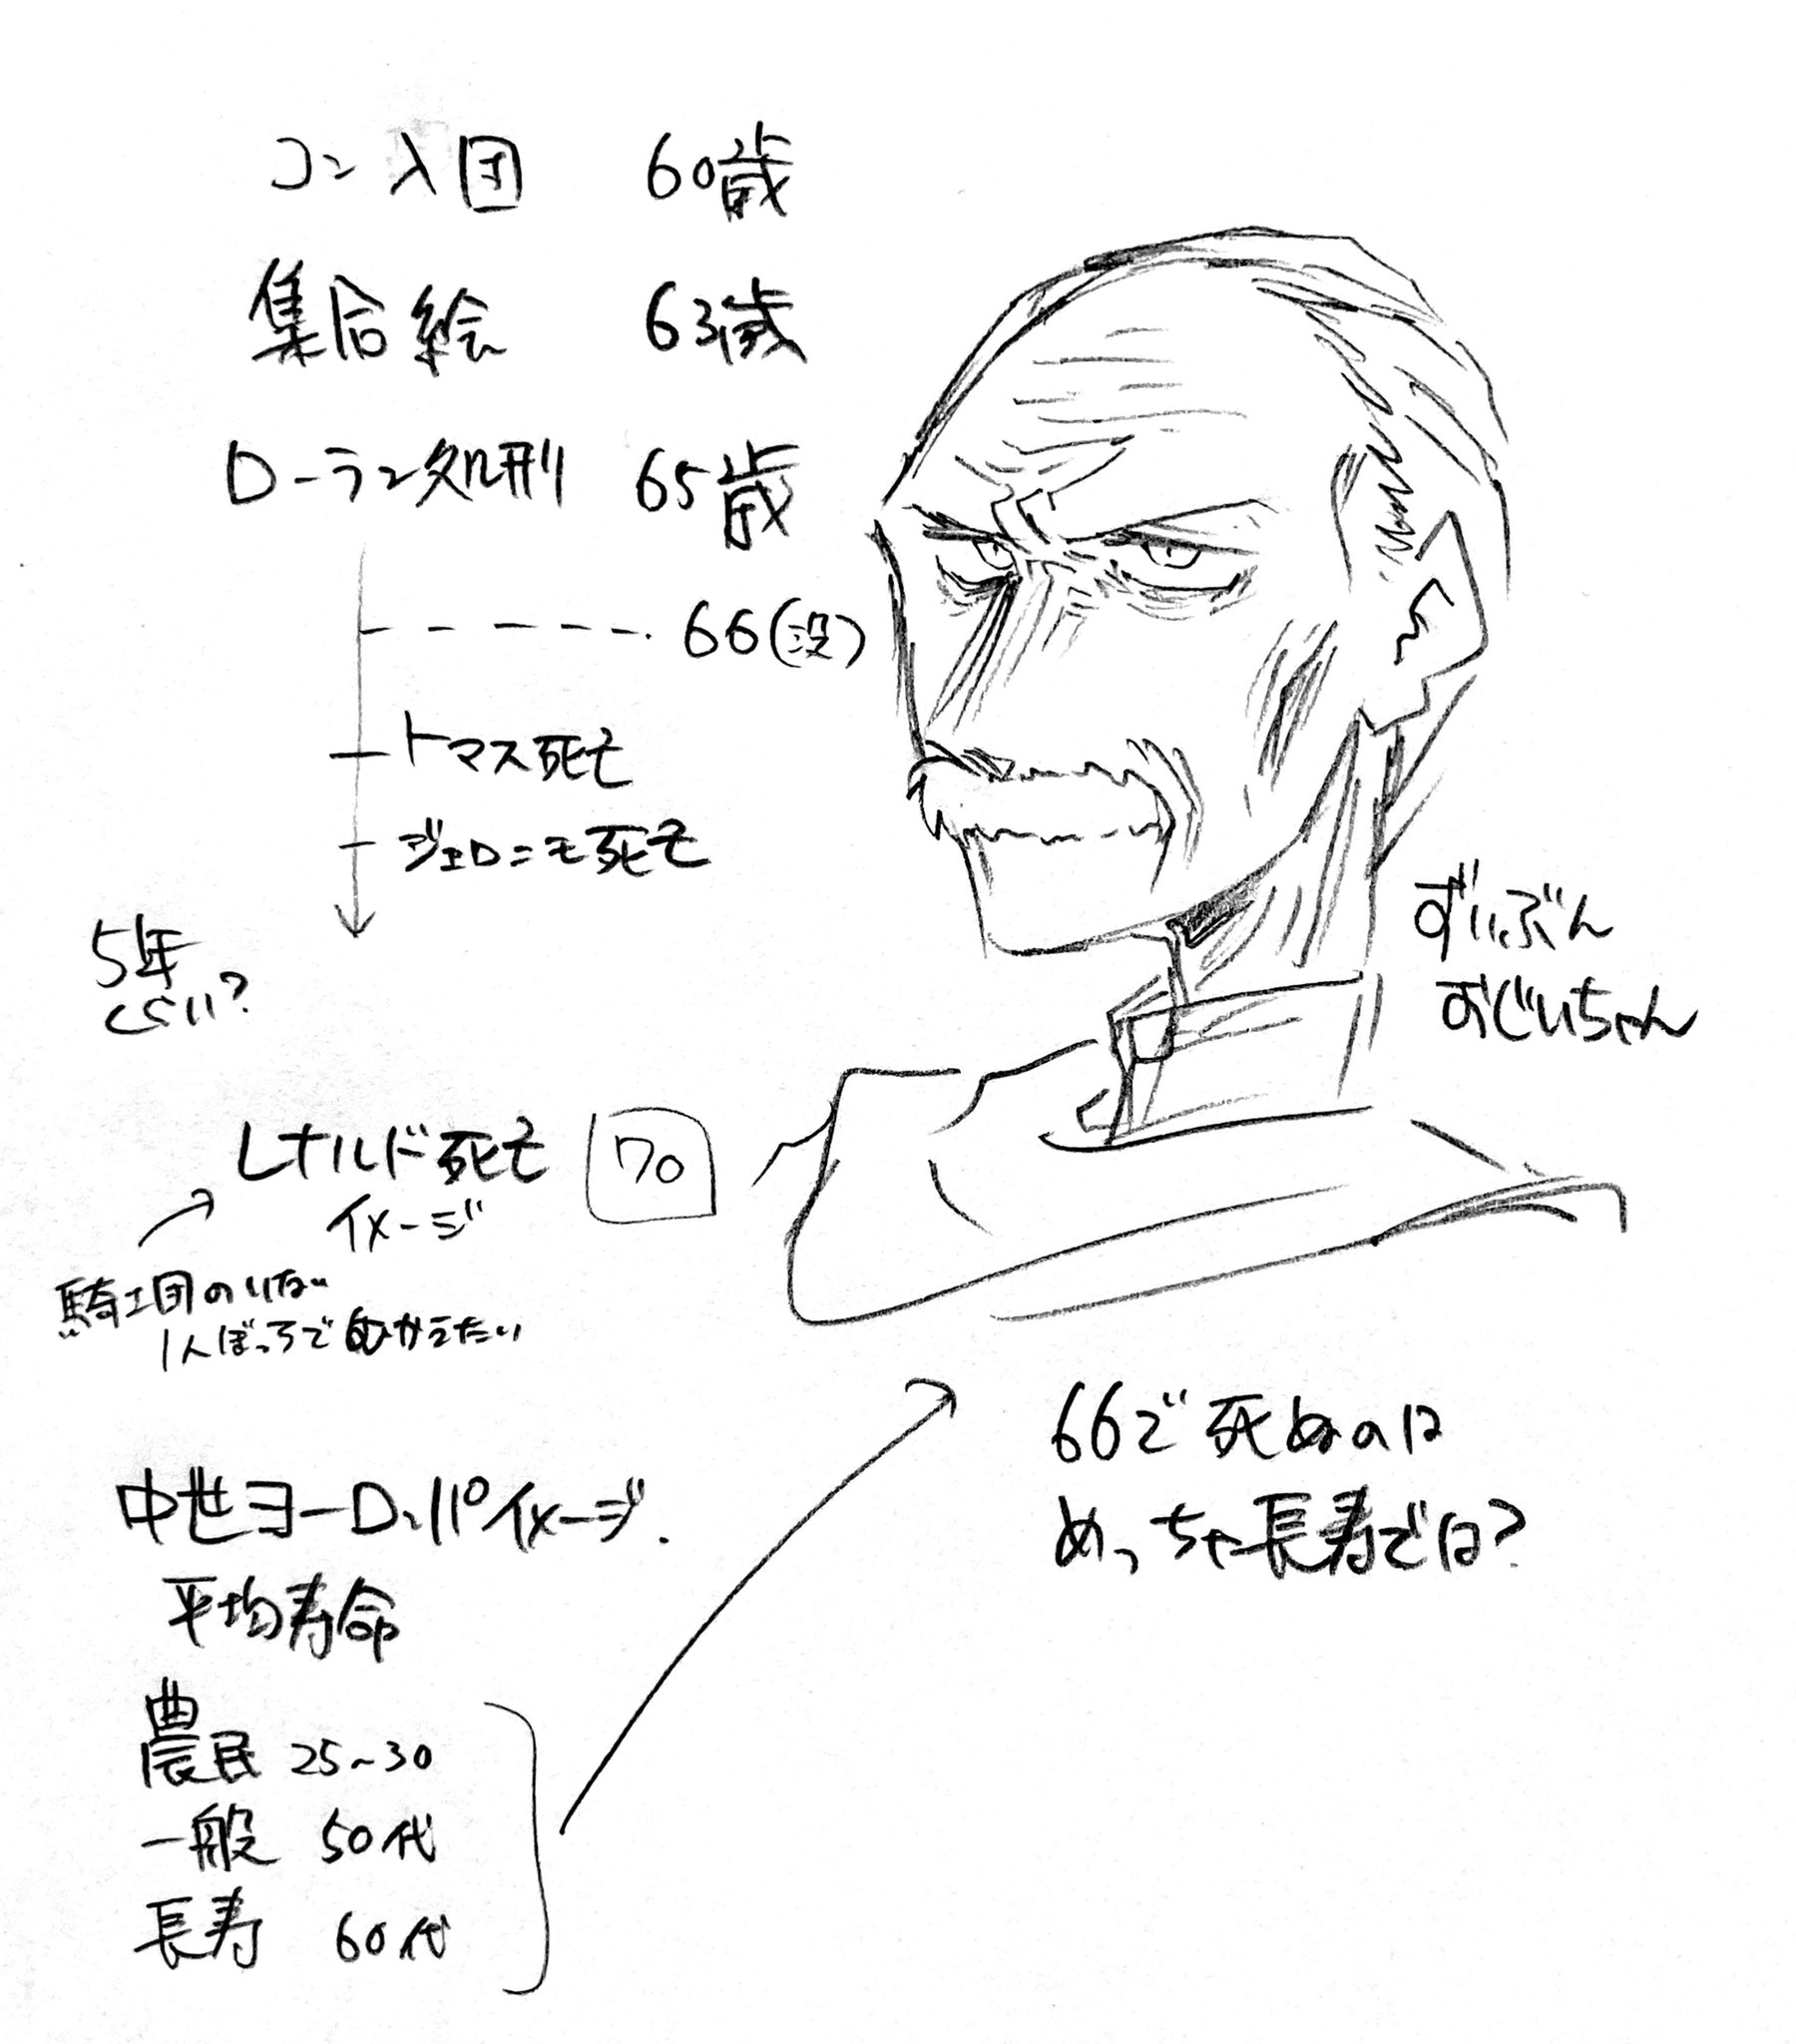 コン入団 60歳
集合絵 63歳
ローラン処刑 65歳
66(没)
トマス死亡
ジェロニモ死亡
5年
くらい?
ずいぶん
おじいちゃん
レナルド死亡 70
イメージ
騎士団のいない
1人ぼっちでむかえたい
中世ヨーロッパイメージ.
平均寿命
農民 25~30
一般 50代
長寿 60代
66で死ぬのは
めっちゃ長寿では?